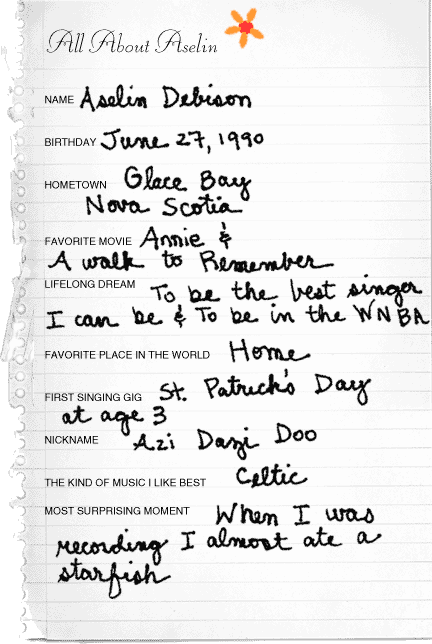 All About Aselin
NAME Aselin Debison
BIRTHDAY June 27, 1990
HOMETOWN Glace Bay
Nova Scotia
FAVORITE MOVIE Annie &
A walk to Remember
LIFELONG DREAM To be the best singer
I can be & To be in the WNBA
FAVORITE PLACE IN THE WORLD Home
FIRST SINGING GIG St. Patrick's Day
at age 3
NICKNAME Azi Dazi Doo
THE KIND OF MUSIC I LIKE BEST Celtic
MOST SURPRISING MOMENT When I was
recording I almost ate a
starfish